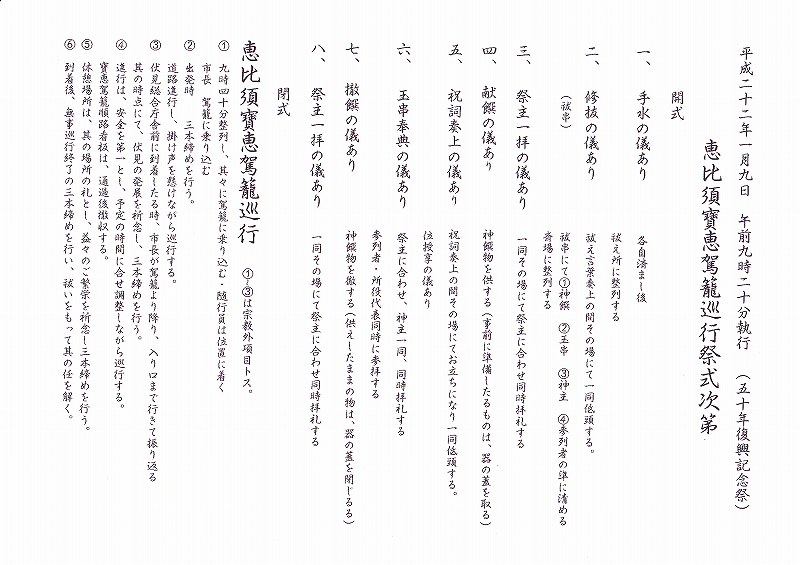 平成二十二年一月九日　午前九時二十分執行　（五十年復興記念祭）
恵比須寶恵駕籠巡行祭式次第
開式
一、手水の儀あり　各自済まし後
祓え所に整列する
二、修抜の儀あり　祓え言葉奏上の間その場にて一同低頭する。
（祓串）　祓串にて①神饌　②玉串　③神主　④参列者の準に清める
斎場に整列する
三、祭主一拝の儀あり　一同その場にて祭主に合わせ同時拝礼する
四、献饌の儀あり　神饌物を供する（事前に準備したるものは、器の蓋を取る）
五、祝詞奏上の儀あり　祝詞奏上の間その場にてお立ちになり一同低頭する。
位授享の儀あり
六、玉串奉典の儀あり　祭主に合わせ、神主一同、同時拝礼する
参列者・所役代表同時に参拝する
七、撤饌の儀あり　神饌物を徹する（供えしたままの物は、器の蓋を閉じるる）
八、祭主一拝の儀あり　一同その場にて祭主に合わせ同時拝礼する
閉式
恵比須寶恵駕籠巡行　①～③は宗教外項目トス。
①　九時四十分整列し、其々に駕籠に乗り込む・随行員は位置に着く
市長　駕籠に乗り込む
②　出発時　三本締めを行う。
道路進行し、掛け声を懸けながら巡行する。
③　伏見総合庁舎前に到着したる時、市長が駕籠より降り、入り口まで行きて振り返る
其の時点にて、伏見の発展を祈念し、三本締めを行う。
④　進行は、安全を第一とし、予定の時間に合せ調整しながら巡行する。
寶恵駕籠順路看板は、通過後撤収する。
⑤　休憩場所は、其の場所の礼とし、益々のご繁栄を祈念し三本締めを行う。
⑥　到着後、無事巡行終了の三本締めを行い、祓いをもって其の任を解く。